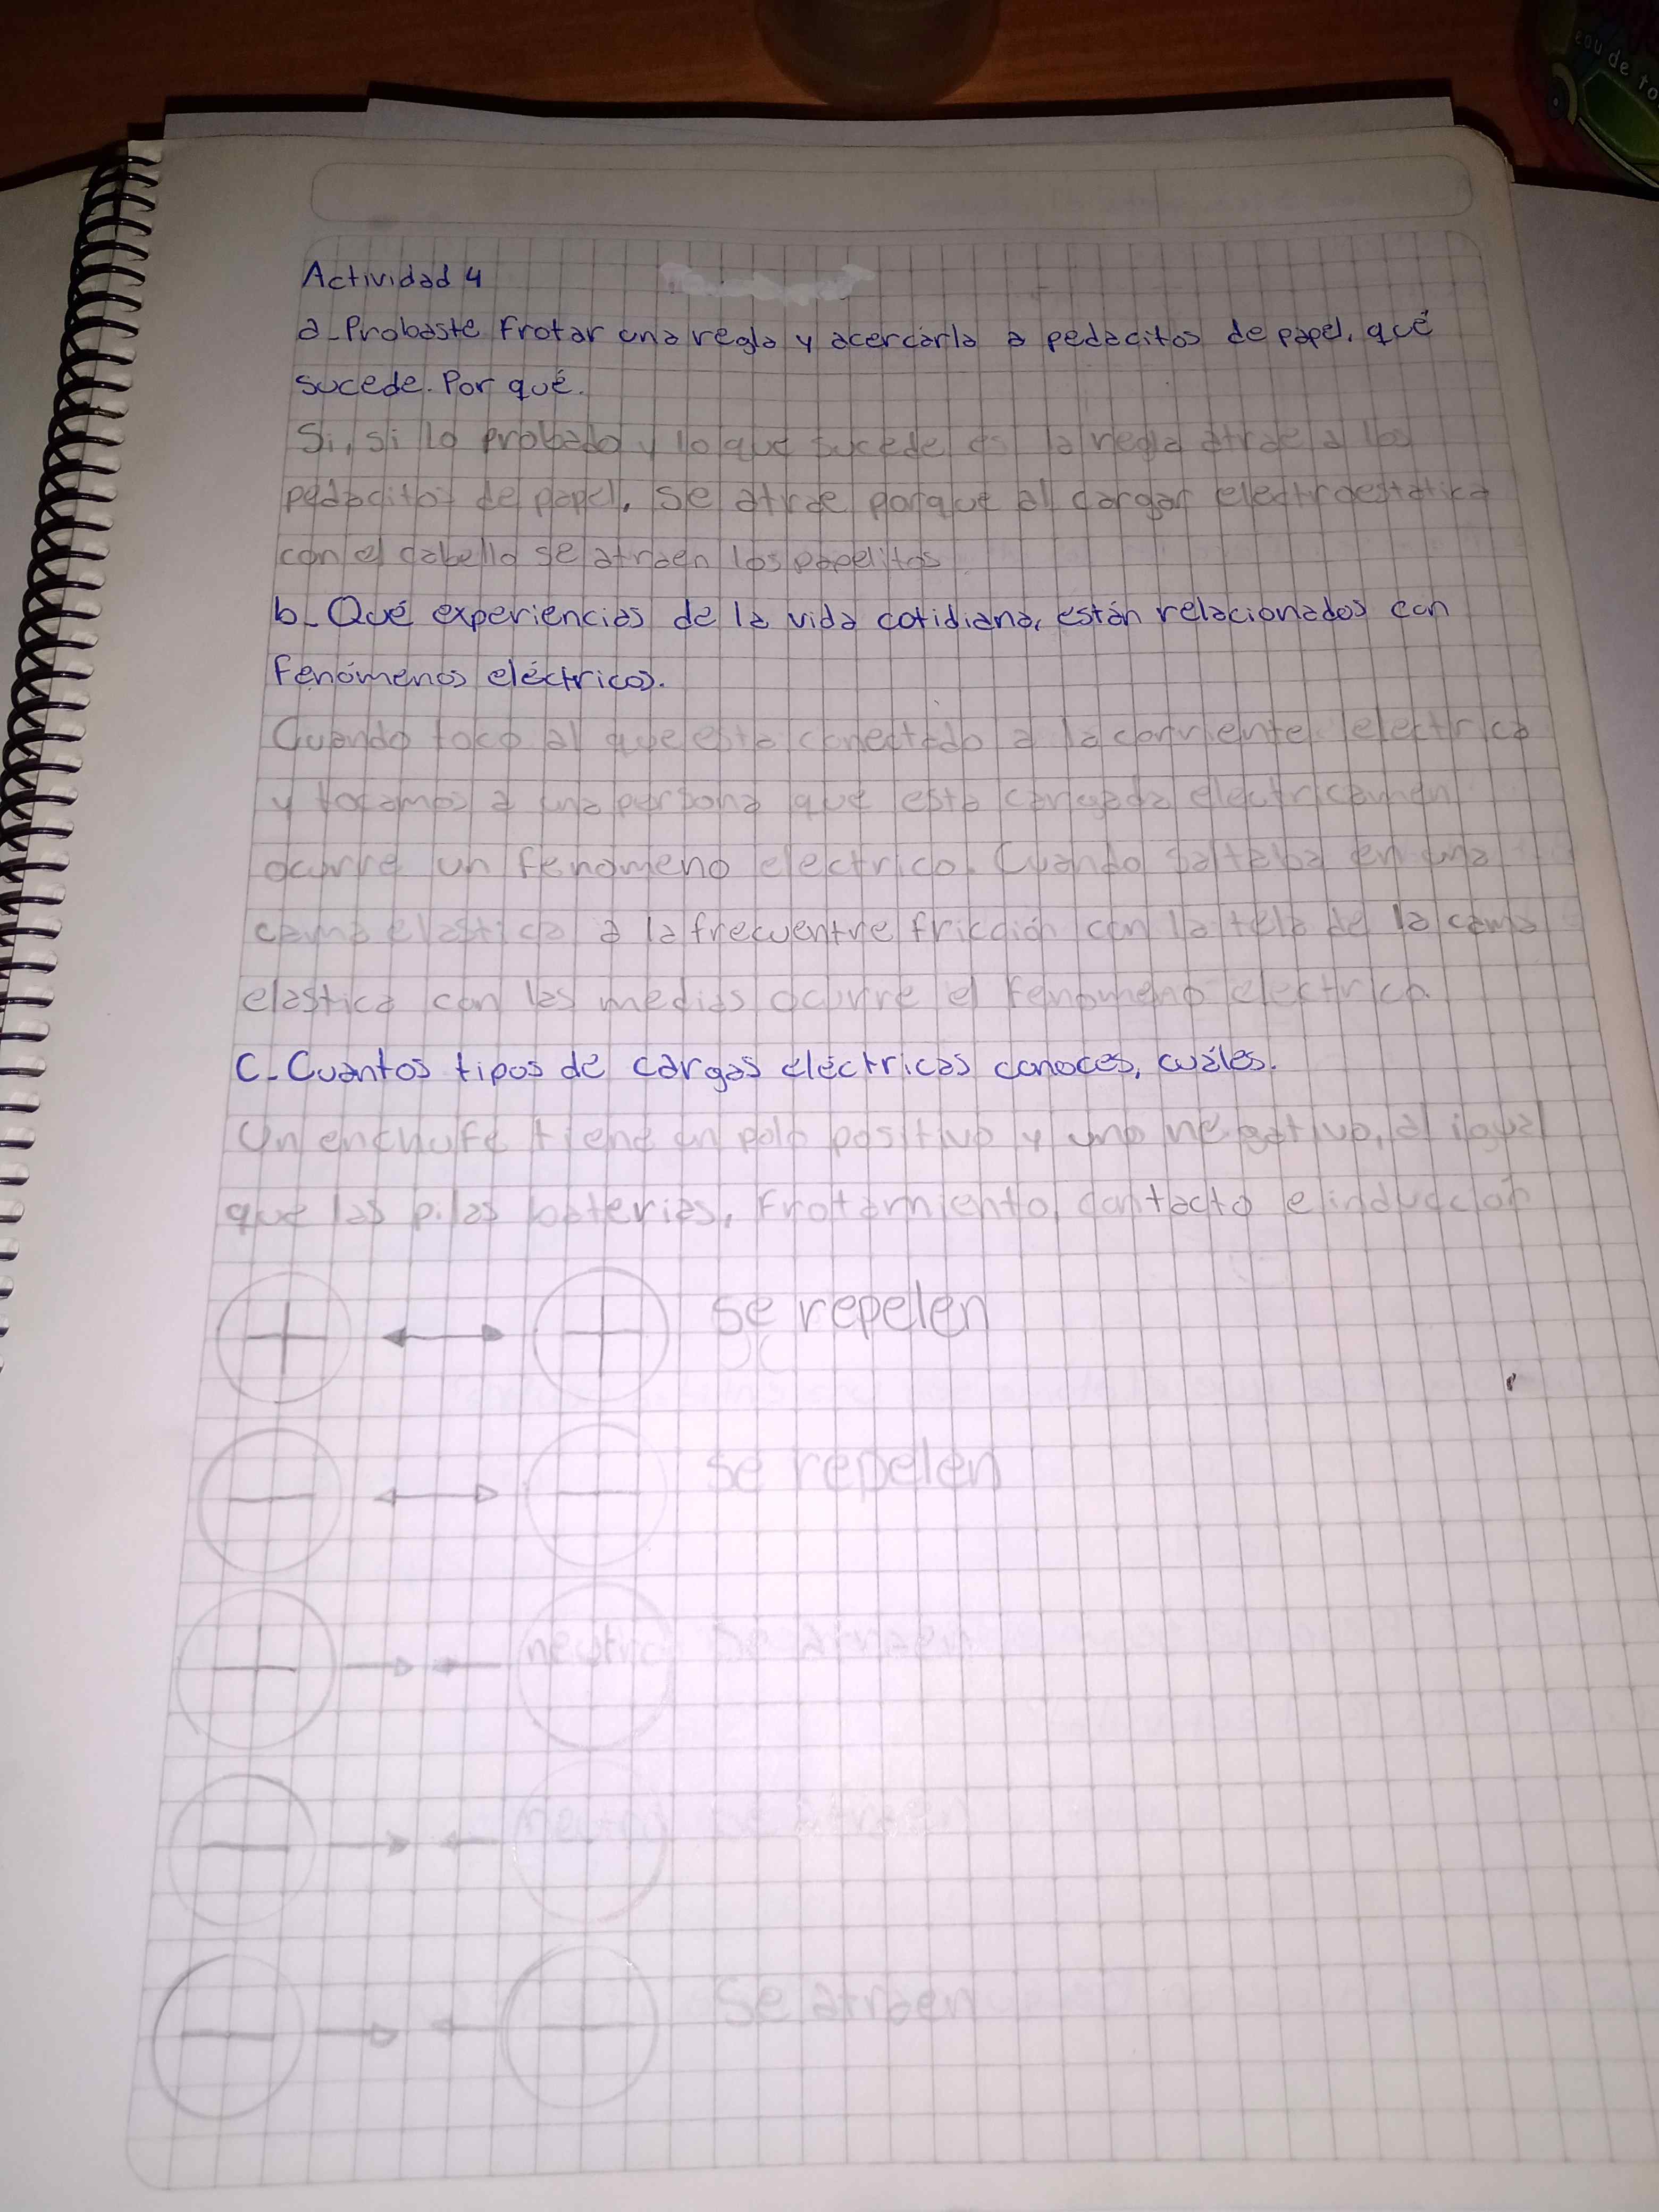 eau de to
Actividad 4
a_Probaste frotar una regla y acercárla a pedacitos de papel, qué
sucede. Por qué.
Si, si lo probado y lo que sucede es la regla atrae a los
pedacitos de papel, se atrae porque al cargar electroestatica
con el cabello se atraen los papelitos
b_ Qué experiencias de la vida cotidiana, están relacionados con
fenómenos eléctricos.
Cuando toco al que esta conectado a la corriente electrica
y tocamos a una persona que esta cargada electricamen
ocurre un fenomeno electrico. Cuando saltaba en una
cama elastica a la frecuentre fricción con la tela de la cama
elastica con las medias ocurre el fenomeno electrico.
C_Cuantos tipos de cargas eléctricas conoces, cuáles.
Un enchufe tiene un polo positivo y uno negativo, al igual
que las pilas baterias, frotamiento, contacto e inducción
+ ↔ + se repelen
− ↔ − se repelen
neutro se atraen
− → ← neutro se atraen
− → ← se atraen